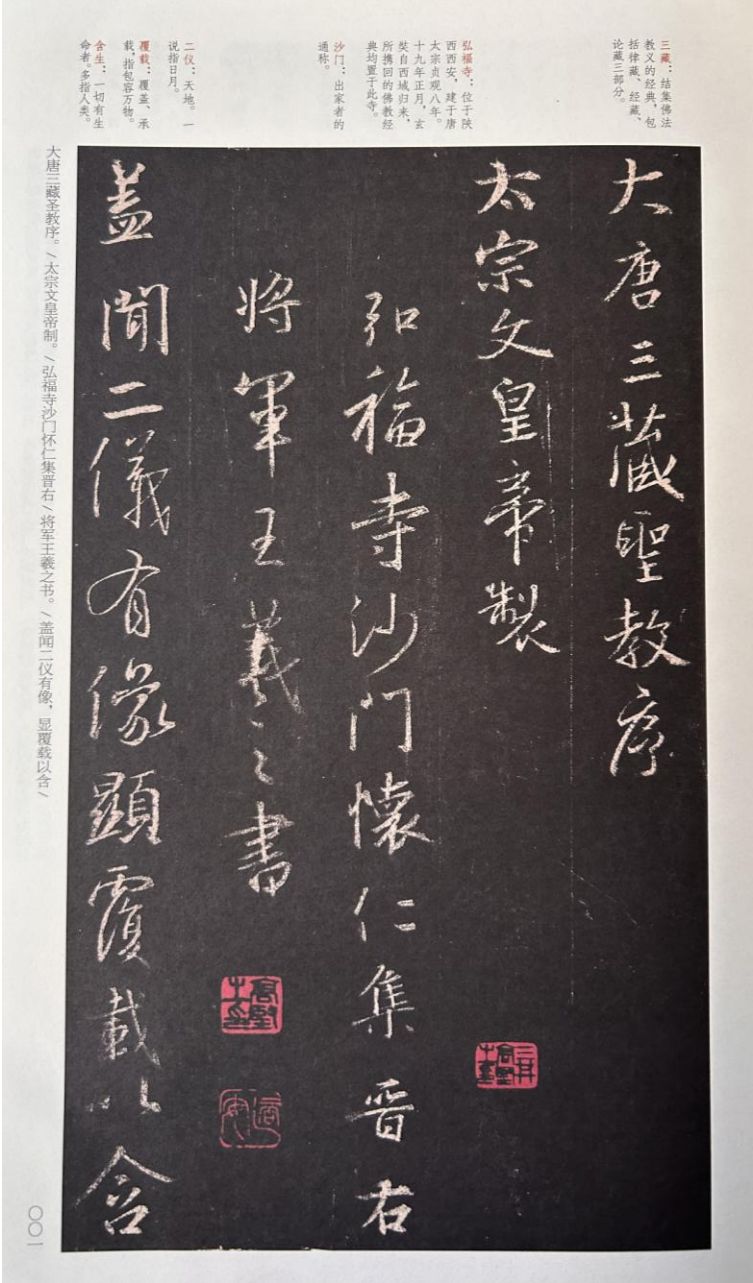 三藏：结集佛法
教义的经典，包
括律藏、经藏、
论藏三部分。
弘福寺：位于陕
西西安，建于唐
太宗贞观八年。
十九年正月，玄
奘自西域归来，
所携回的佛教经
典均置于此寺。
沙门：出家者的
通称。
二仪：天地。一
说指日月。
覆载：覆盖、承
载，指包容万物。
含生：一切有生
命者。多指人类。
大唐三藏聖教序
太宗文皇帝製
弘福寺沙门懷仁集晋右
将軍王羲之書
盖聞二儀有像顯覆載以含
大唐三藏圣教序。/太宗文皇帝制。/弘福寺沙门怀仁集晋右/将军王羲之书。/盖闻二仪有像，显覆载以含/
〇〇一